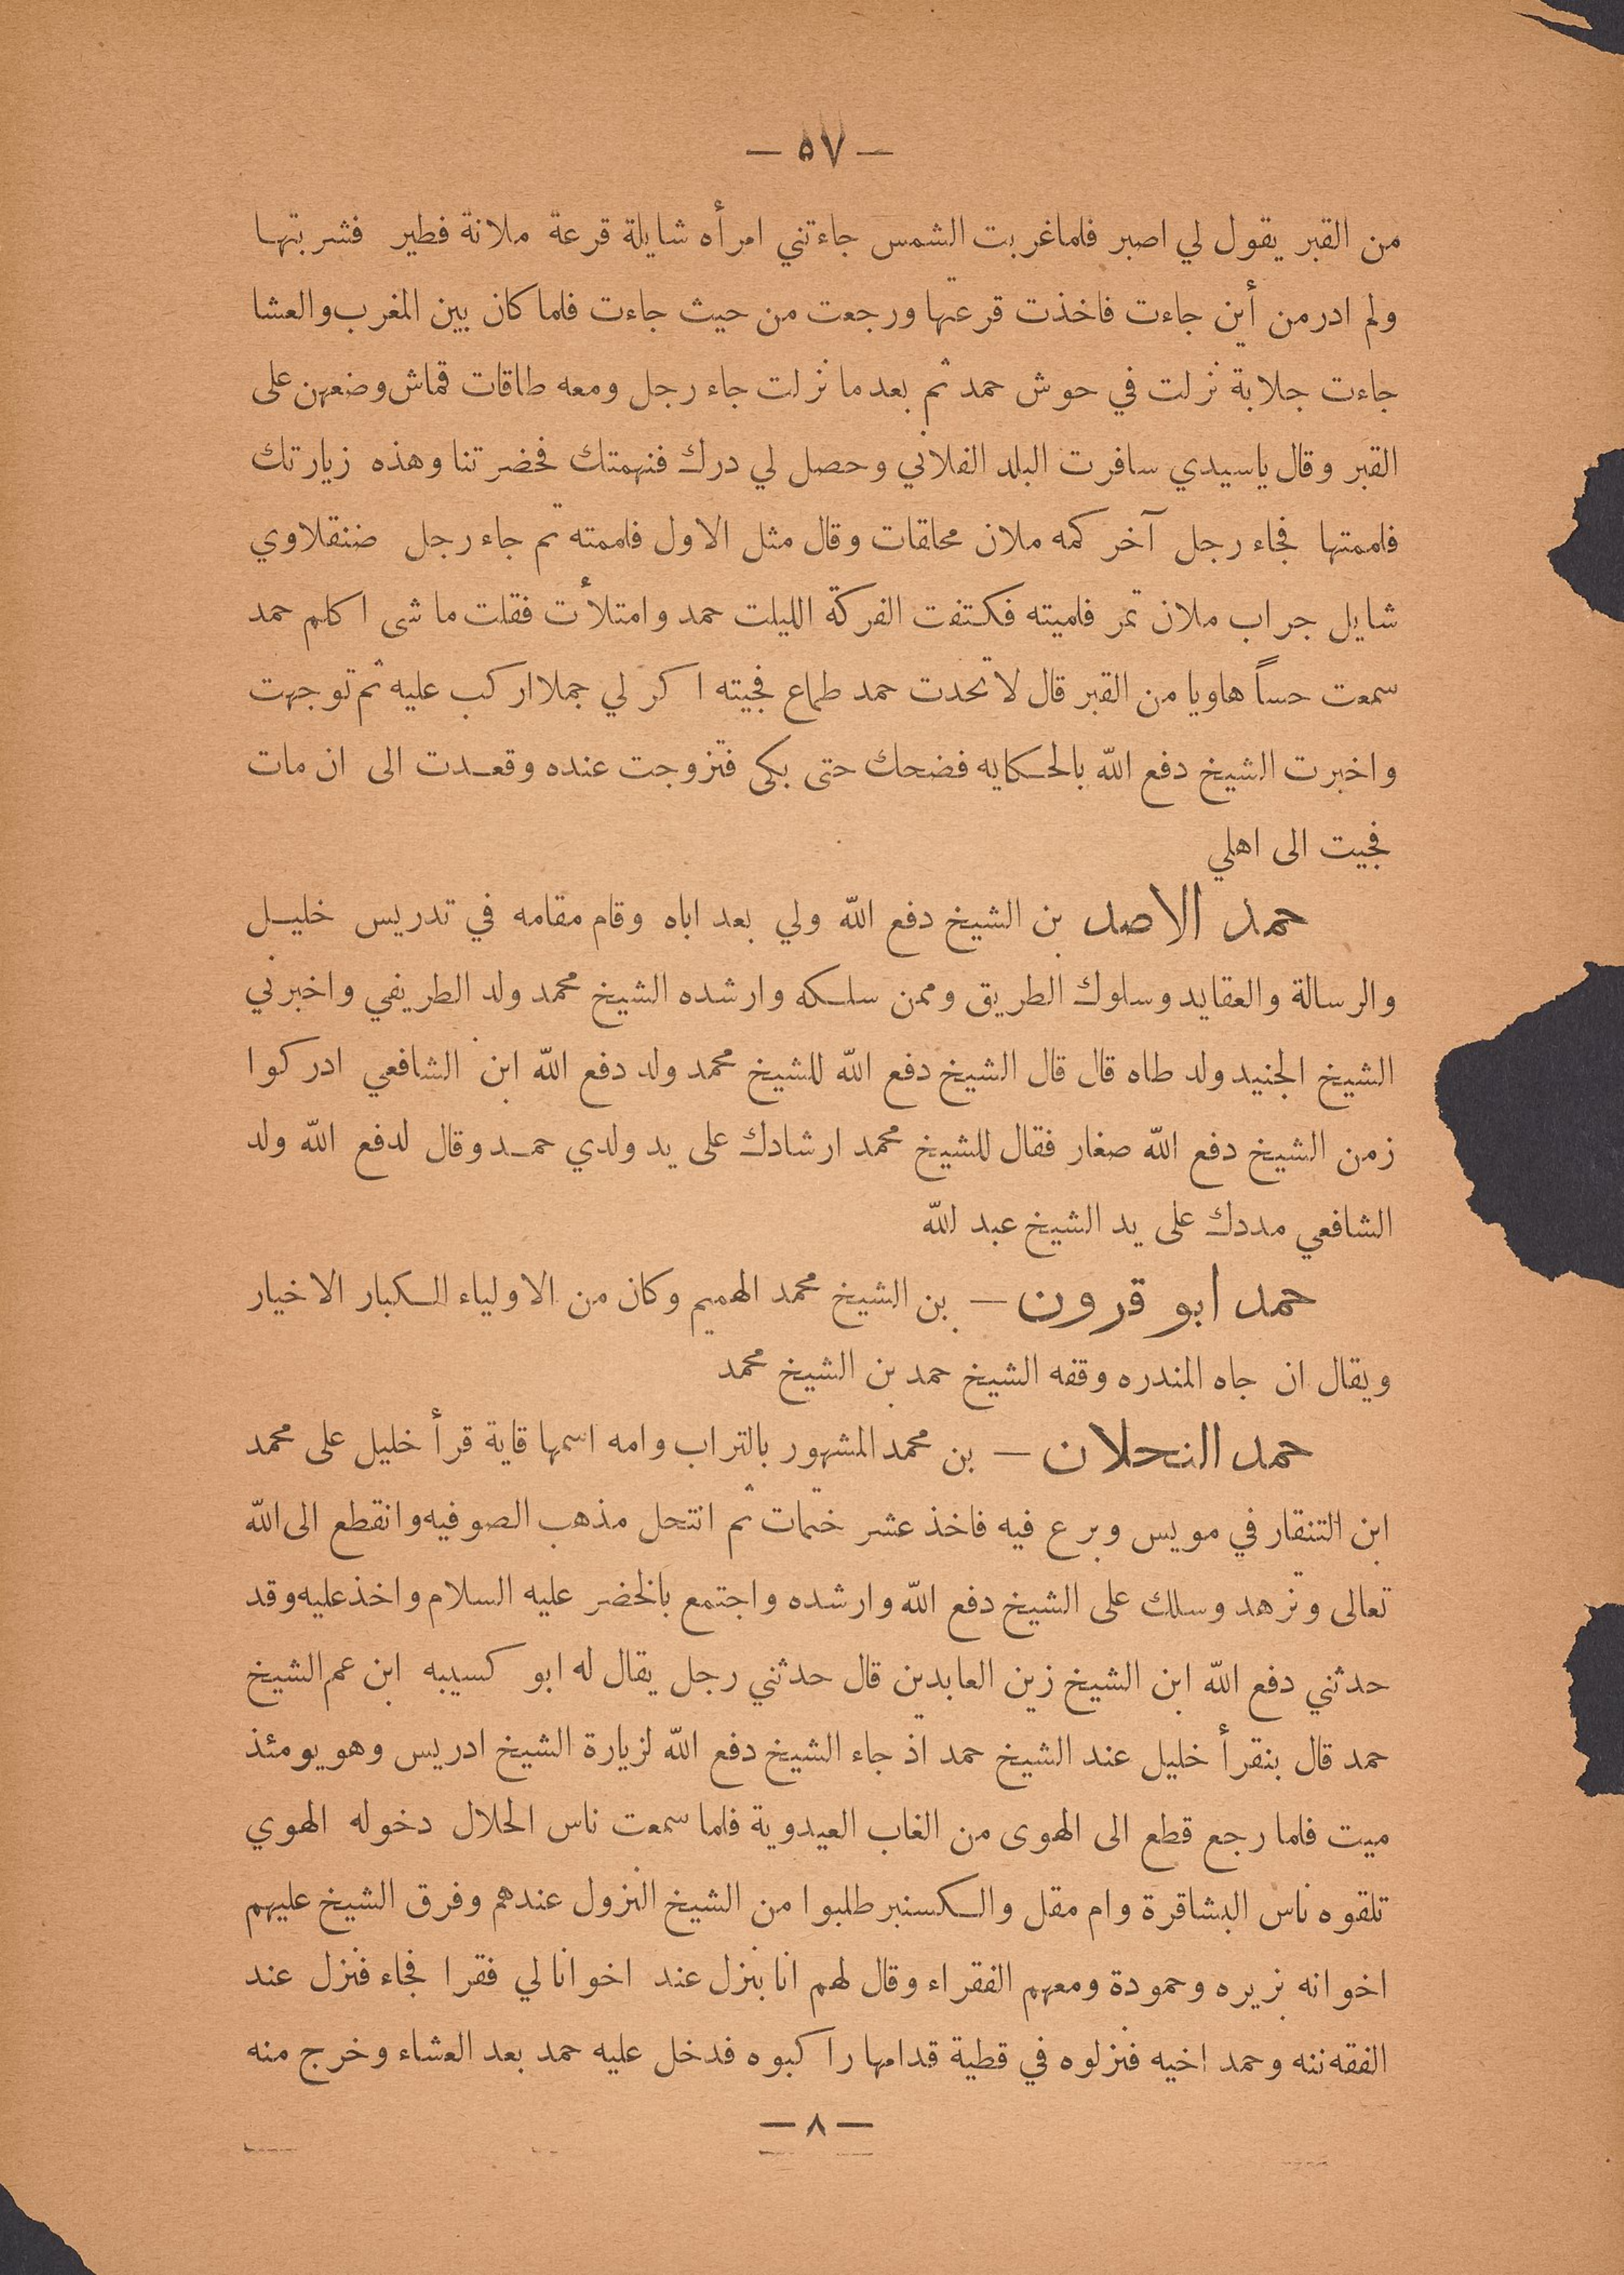 — ٥٧ —
من القبر يقول لي اصبر فلما غربت الشمس جاءتني امرأه شايلة قرعة ملانة فطير فشربتها
ولم ادر من أين جاءت فاخذت قرعتها ورجعت من حيث جاءت فلما كان بين المغرب والعشا
جاءت جلابة نزلت في حوش حمد ثم بعد ما نزلت جاء رجل ومعه طاقات قماش وضعهن على
القبر وقال ياسيدي سافرت البلد الفلاني وحصل لي درك فنهمتك فحضرتنا وهذه زيارتك
فلممتها فجاء رجل آخر كمه ملان محلقات وقال مثل الاول فلممته ثم جاء رجل ضنقلاوي
شايل جراب ملان تمر فلميته فكتفت الفركة الليلت حمد وامتلأت فقلت ما شى اكلم حمد
سمعت حساً هاويا من القبر قال لا تحدت حمد طماع فجيته اكر لي جملا اركب عليه ثم توجهت
واخبرت الشيخ دفع الله بالحكايه فضحك حتى بكى فتزوجت عنده وقعدت الى ان مات
فجيت الى اهلي
حمد الاصد بن الشيخ دفع الله ولي بعد اباه وقام مقامه في تدريس خليل
والرسالة والعقايد وسلوك الطريق وممن سلكه وارشده الشيخ محمد ولد الطريفي واخبرني
الشيخ الجنيد ولد طاه قال قال الشيخ دفع الله للشيخ محمد ولد دفع الله ابن الشافعي ادركوا
زمن الشيخ دفع الله صغار فقال للشيخ محمد ارشادك على يد ولدي حمد وقال لدفع الله ولد
الشافعي مددك على يد الشيخ عبد الله
حمد ابو قرون — بن الشيخ محمد الهميم وكان من الاولياء الكبار الاخيار
ويقال ان جاه المندره وقفه الشيخ حمد بن الشيخ محمد
حمد النحلان — بن محمد المشهور بالتراب وامه اسمها قاية قرأ خليل على محمد
ابن التنقار في مويس وبرع فيه فاخذ عشر ختمات ثم انتحل مذهب الصوفيه وانقطع الى الله
تعالى وتزهد وسلك على الشيخ دفع الله وارشده واجتمع بالخضر عليه السلام واخذ عليه وقد
حدثني دفع الله ابن الشيخ زين العابدين قال حدثني رجل يقال له ابو كسيبه ابن عم الشيخ
حمد قال بنقرأ خليل عند الشيخ حمد اذ جاء الشيخ دفع الله لزيارة الشيخ ادريس وهو يومئذ
ميت فلما رجع قطع الى الهوى من الغاب العيدوية فلما سمعت ناس الحلال دخوله الهوي
تلقوه ناس البشاقرة وام مقل والكسنبر طلبوا من الشيخ النزول عندهم وفرق الشيخ عليهم
اخوانه بزيره وحمودة ومعهم الفقراء وقال لهم انا بنزل عند اخوانا لي فقرا فجاء فنزل عند
الفقه ننه وحمد اخيه فنزلوه في قطية قدامها راكبوه فدخل عليه حمد بعد العشاء وخرج منه
— ٨ —